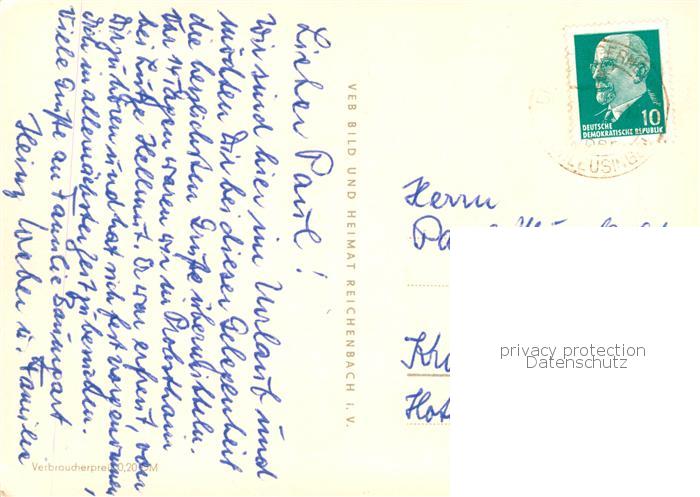 Lieber Paul!
Wir sind hier im Urlaub und
möchten Dir bei dieser Gelegenheit
die herzlichsten Grüße übermitteln.
Vor 10 Tagen waren wir in
bei Hellmut. Er war erfreut, von
Dir zu hören und hat sich fest vorgenommen,
Dich in allernächster Zeit zu besuchen.
Viele Grüße an Familie Baumgart
Heinz u. Familie
VEB BILD UND HEIMAT REICHENBACH i. V.
Verbraucherpreis 0,20 DM
DEUTSCHE
DEMOKRATISCHE REPUBLIK
10
Herrn
privacy protection
Datenschutz